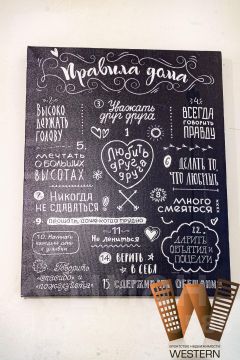 Правила дома
1
Высоко
держать
голову
3 Уважать
друг друга
4
Всегда
говорить
правду
5.
Мечтать
о больших
высотах
Любить
друг
друга
6 Делать то,
что любишь
7 Никогда
не сдаваться
8.
Много
смеяться
9 прощать, даже когда трудно
10. Начинать
каждый день
с улыбки
11
Не лениться
12.
Дарить
объятия и
поцелуи
13. Говорить
«спасибо» и
«пожалуйста»
14 Верить
в себя
15 Сдерживать обещания
W
АГЕНТСТВО НЕДВИЖИМОСТИ
WESTERN